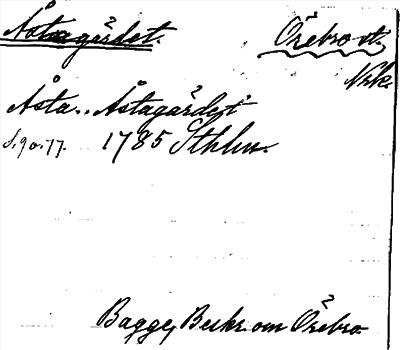 Åstagärdet. Örebro st.
Nrk.
Åsta.. Åstagärdet
S. 90. 77. 1785 Sthlm.
Bagge, Beskr. om Örebro